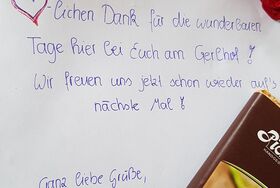 -lichen Dank für die wunderbaren
Tage hier bei Euch am Gerlhof !
Wir freuen uns jetzt schon wieder auf's
nächste Mal !
Ganz liebe Grüße,